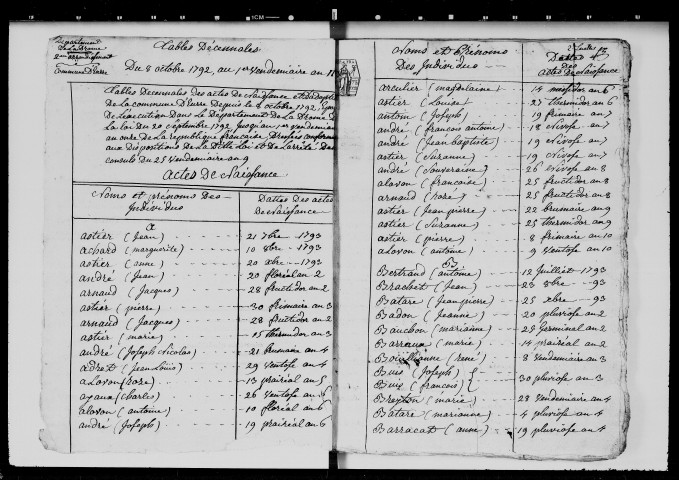 Département
de la Drome
2me arrondissement
Commune d'Eurre
Tables Décennales
Du 8 octobre 1792, au 1er vendemiaire an 11
Tables Decennales des actes de Naissance
De la commune D'Eurre Depuis le 8 octobre 1792, Epoque
De l'execution Dans le Departement De La Drome De
La loi Du 20 septembre 1792, Jusqu'au 1er vendemiaire
an onze De la republique française Dressées conformement
aux Dispositions De la Dite Loi et De L'arrêté Des
Consuls Du 25 vendemiaire an 9
actes De Naissance
Noms et prénoms Des Individus
Dattes Des actes De Naissance
A
astier (Jean) 21 7bre 1793
achard (marguerite) 10 8bre 1793
astier (anne) 20 xbre 1793
andré (Jean) 20 floréal an 2
arnaud (Jacques) 28 fructidor an 2
astier (pierre) 30 frimaire an 3
arnaud (Jacques) 28 fructidor an 2
astier (marie) 15 thermidor an 3
andré (Joseph Nicolas) 21 Brumaire an 4
adret (Jean Louis) 29 ventose an 4
alovon (Rose) 13 prairial an 5
ayaux (Charles) 26 ventose an 6
alovon (antoine) 10 floréal an 6
andré (Joseph) 19 prairial an 6
2 feuillet
Noms et Prénoms Des Individus
Dattes Des actes De Naissance
arculier (magdelaine) 14 messidor an 6
astier (Louise) 27 thermidor an 6
antom (Joseph) 19 frimaire an 7
andré (françois antoine) 18 Nivose an 7
andré (Jean baptiste) 19 Nivose an 7
astier (Suzanne) 19 Nivose an 7
andré (Souveraine) 26 Nivose an 8
alovon (francoise) 25 fructidor an 8
arnaud (Rose) 25 fructidor an 8
astier (Jean pierre) 22 brumaire an 9
astier (Suzanne) 25 thermidor an 9
astier (pierre) 8 frimaire an 10
alovon (antoine) 9 ventose an 10
B
Bertrand (antoine) 12 Juilliet 1793
Brachet (Jean) 23 8bre 93
Batare (Jean pierre) 25 xbre 93
Badon (Jeanne) 20 pluviose an 2
Bauchon (marianne) 25 germinal an 2
Barraux (marie) 14 prairéal an 2
Bouillanne (rené) 8 vendemiaire an 3
Buis (Joseph)
Buis (francois) 30 pluviose an 3
Breyton (marie) 28 vendemiaire an 4
Batare (marianne) 4 pluviose an 4
Barracat (anne) 19 pluviose an 4